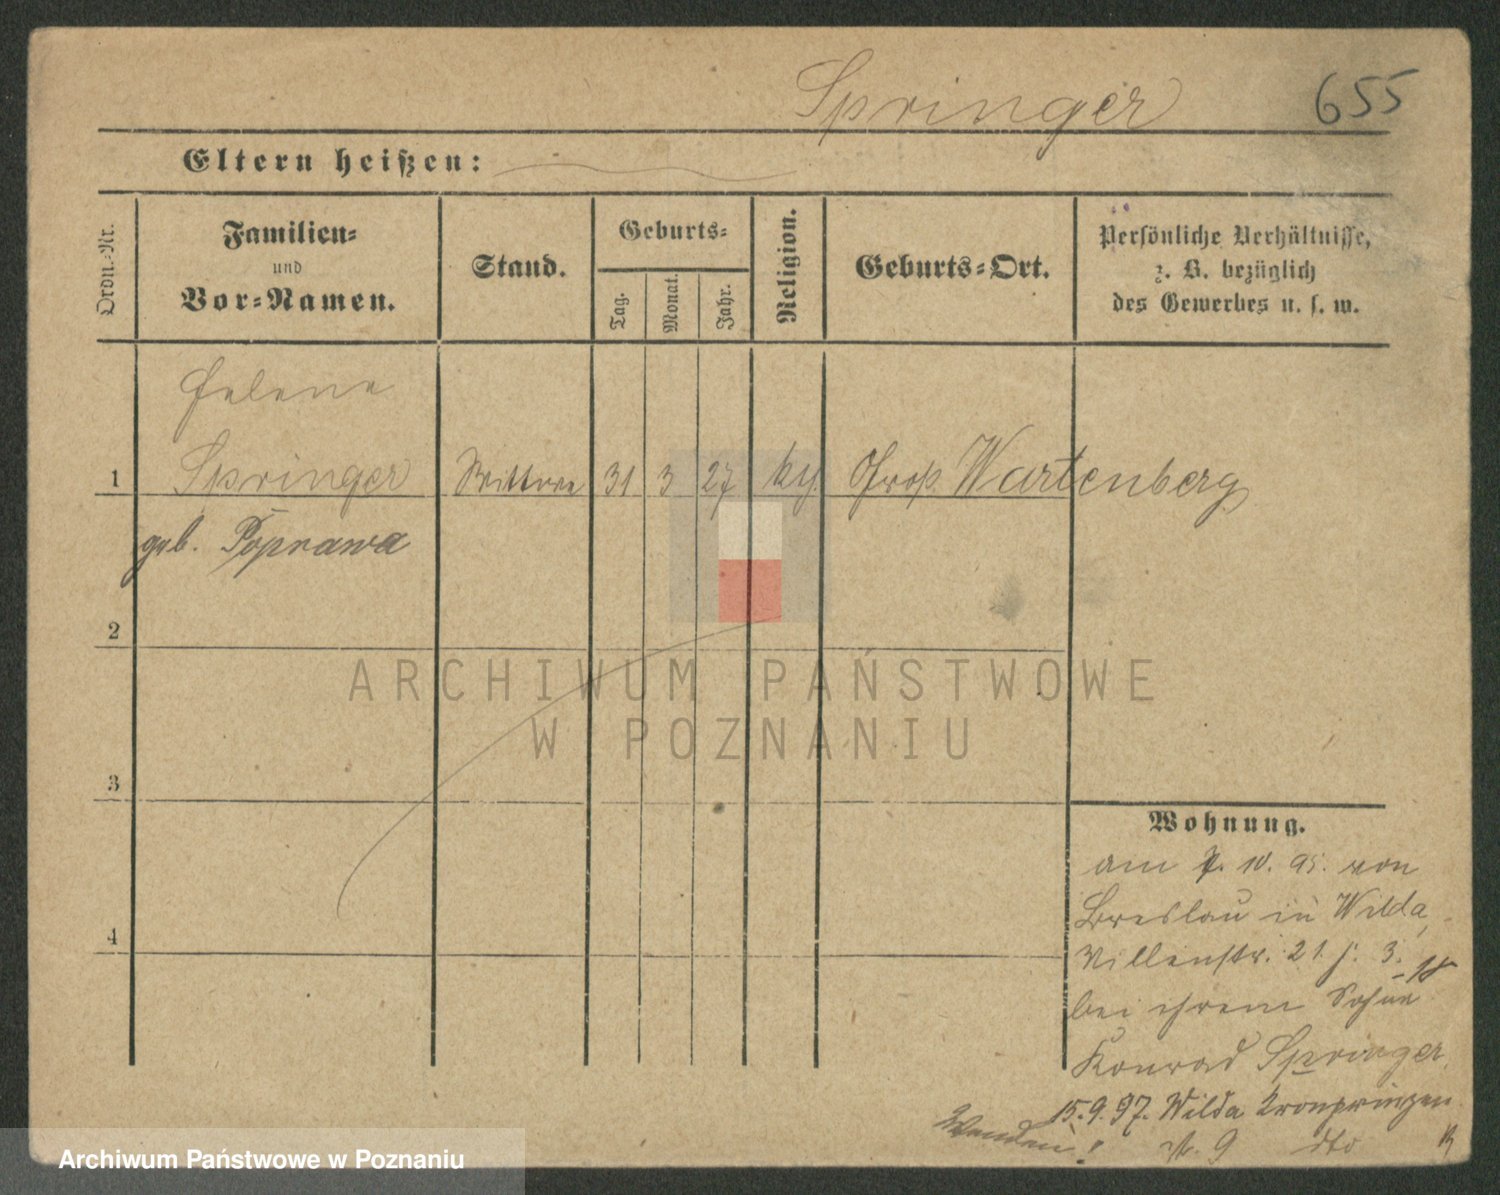 Springer 655
Eltern heißen:
Ordn.-Nr.
Familien-
und
Vor-Namen.
Stand.
Geburts-
Tag.
Monat.
Jahr.
Religion.
Geburts-Ort.
Persönliche Verhältnisse,
z. B. bezüglich
des Gewerbes u. s. w.
Helene
1 Springer Wittwe 31 3 27 Groß Wartenberg
geb. Poprawa
2
ARCHIWUM PAŃSTWOWE
W POZNANIU
3
4
Wohnung.
am 7. 10. 95. von
Breslau in Wilda,
Villenstr. 21 j. 3.
bei ihrem Sohne
Konrad Springer
15.9.97. Wilda Kronprinzen
Wenden! str. 9 dto
Archiwum Państwowe w Poznaniu